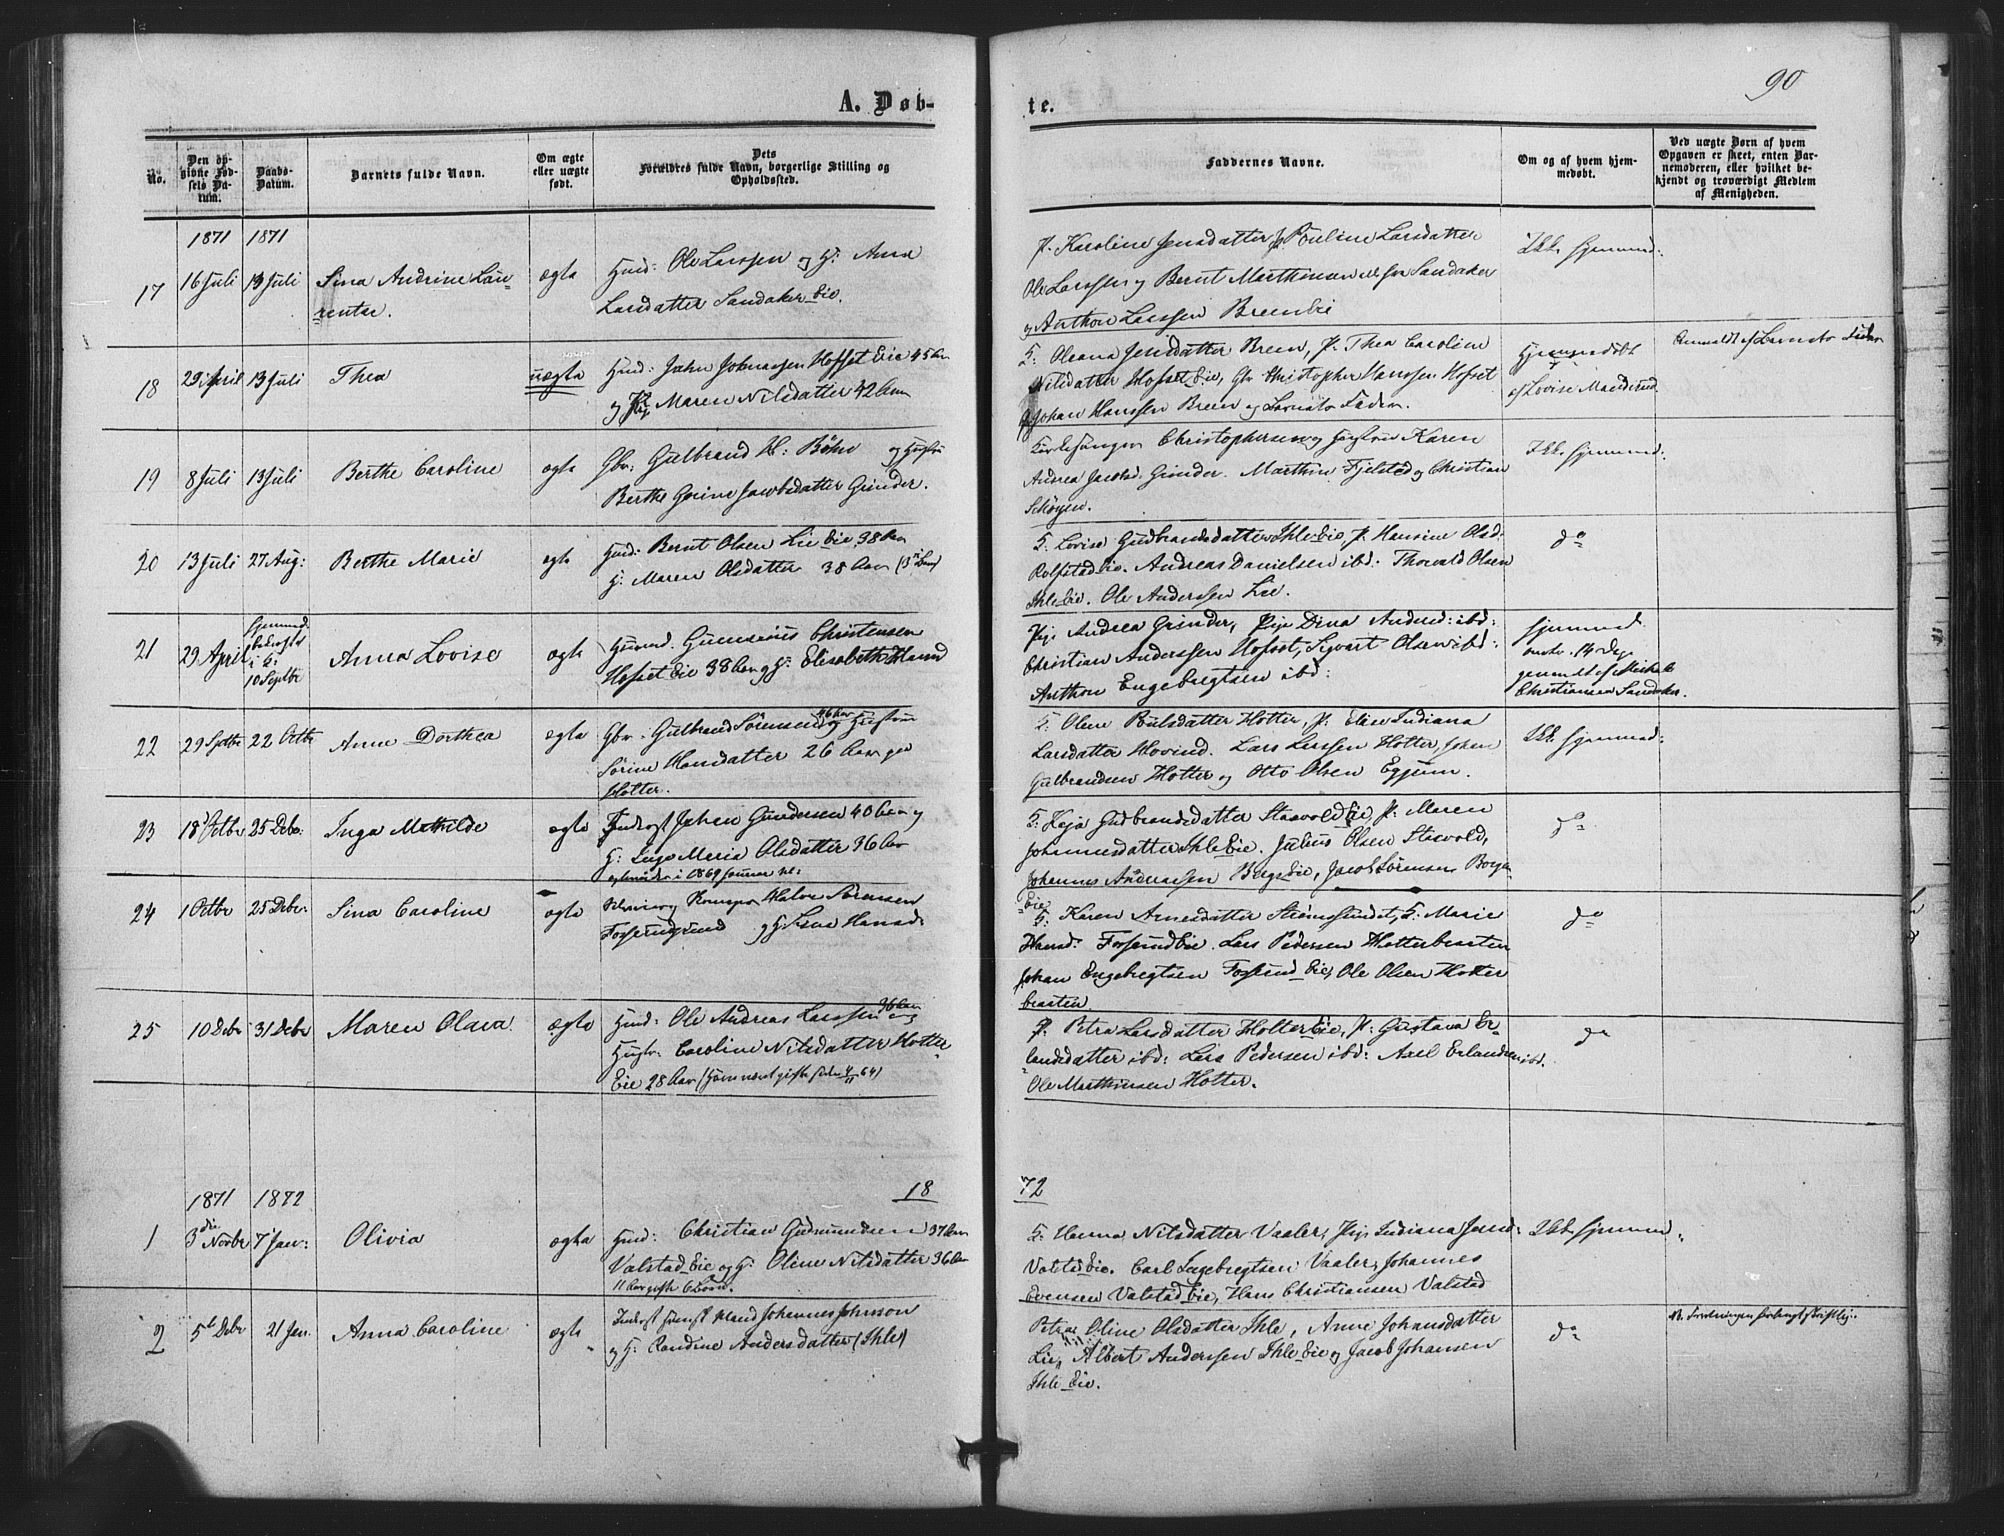 90
A. Døb-
te.
No.
Den op-
givne Fød-
sels Da-
tum.
Daabs-
Datum.
Barnets fulde Navn.
Om ægte
eller uægte
født.
Dets
Forældres fulde Navn, borgerlige Stilling og
Opholdssted.
Faddernes Navne.
Om og af hvem hjem-
medøbt.
Ved uægte Børn af hvem
Opgaven er skeet, enten Bar-
nemoderen, eller hvilket be-
kjendt og troværdigt Medlem
af Menigheden.
1871 1871
17 16 Juli 13 Juli Sina Andrine Lau-
rentse.
ægte
Huusd: Ole Larssen og H: Anna
Larsdatter Sandaker Eie.
P. Karoline Jensdatter P. Pouline Larsdatter
Ole Larssen og Bernt Marthinsen Sandaker
og Anthon Larssen Breen Eie
Ikk. hjemmed:
18 29 April 13 Juli Thea uægte
Huusd: John Johnassen Hofset Eie 45 Aar
og Pige Maren Nilsdatter 42 Aar
G: Oleana Jensdatter Breen, P. Thea Caroline
Nilsdatter Hofset Eie, Gbr Christopher Hanssen Hofset
Johan Hanssen Breen og Barnets Fader.
Hjemmedøbt
af Lovise Manderud
Anmeldt af Barnets Fader
19 8 Juli 13 Juli Berthe Caroline ægte
Gbr: Gulbrand H: Bøhn og Hustru
Berthe Gurine Jacobsdatter Grinder.
Kirkesanger Christophersen og Hustru Karen
Andrea Jacobsd. Grinder. Marthin Fjelstad og Christian
Schøyen.
Ikk. hjemmed:
20 13 Juli 27 Aug: Berthe Marie ægte
Huusd: Bernt Olsen Lie Eie 38 Aar
H: Maren Olsdatter 38 Aar
G: Lovise Gudbrandsdatter Ihle Eie, P. Hansine Olsd.
Rolfstad Eie. Andreas Danielsen ibd: Thorvald Olsen
Ihle Eie. Ole Anderssen Lie.
do
21 29 April Hjemmed.
bekræftet
i K:
10 Septbr
Anna Lovise ægte
Huusmd. Christensen
Hofset Eie 38 Aar og H: Elisabeth
Pige Andrea Grinder, Pige Dina Andersd: ibd:
Christian Anderssen Hofset, Sigvart Olsen ibd:
Anthon Engebregtsen ibd:
Hjemmed
omtr. 14 Dage
gammelt af Michal
Christiansen Sandaker.
22 29 Septbr 22 Octbr Anne Dorthea ægte
Gbr. Gulbrand Sørensen 46 Aar og Hustru
Sørine Hansdatter 26 Aar paa
Holter.
G: Olene Poulsdatter Holter, P: Elise Indiana
Larsdatter Hovind. Lars Larssen Holter, Johan
Gulbrandsen Holter og Otto Olsen Egjeim.
Ikk. hjemmed:
23 18 Octbr 25 Debr: Inga Mathilde ægte
Inderst Johan Gundersen 40 Aar og
H: Inge Maria Olsdatter 36 Aar
G: Kaja Gudbrandsdatter Staavold Eie, P: Maren
Johannesdatter Ihle Eie. Julius Olsen Staavold,
Johannes Andreassen Bergs Eie, Jacob Sørensen Borge
Eie
do
24 1 Octbr 25 Debr: Sina Caroline ægte
Halvor Sørensen
Fosserudgrund og H: Hansd:
G: Karen Arnesdatter Strømsundet, G: Marie
Hansd: Fosserud Eie. Lars Pedersen Holterbraaten
Johan Engebregtsen Fosserud Eie, Ole Olsen Holter
braaten
do
25 10 Debr 31 Debr Maren Olava. ægte
Huusd: Ole Andreas Larssen 36 Aar og
Hustr: Caroline Nilsdatter Holter
Eie 28 Aar
P: Petra Larsdatter Holter Eie, P: Gustava Er-
landsdatter ibd: Lars Pedersen ibd: Axel Erlandsen ibd.
Ole Marthinsen Holter.
do
18 72
1871 1872
1 3die Novbr 7 Jan: Olivia ægte
Huusd: Christian Gudmundsen 37 Aar
Valstad Eie og H: Oline Nilsdatter 36 Aar
11 Aar gifte 6 Børn.
G: Hanna Nilsdatter Vaaler, Pige Indiana Jensd:
Valstad Eie. Carl Engebregtsen Vaaler, Johannes
Evensen Valstad Eie, Hans Christiansen Valstad
Ikk. hjemmed.
2 5te Debr 21 Jan. Anna Caroline ægte
Inderst Johannes Johnson
og H: Randine Andersdatter (Ihle)
Petra Oline Olsdatter Ihle, Anne Johansdatter
Lie, Albert Anderssen Ihle Eie og Jacob Johansen
Ihle Eie.
do